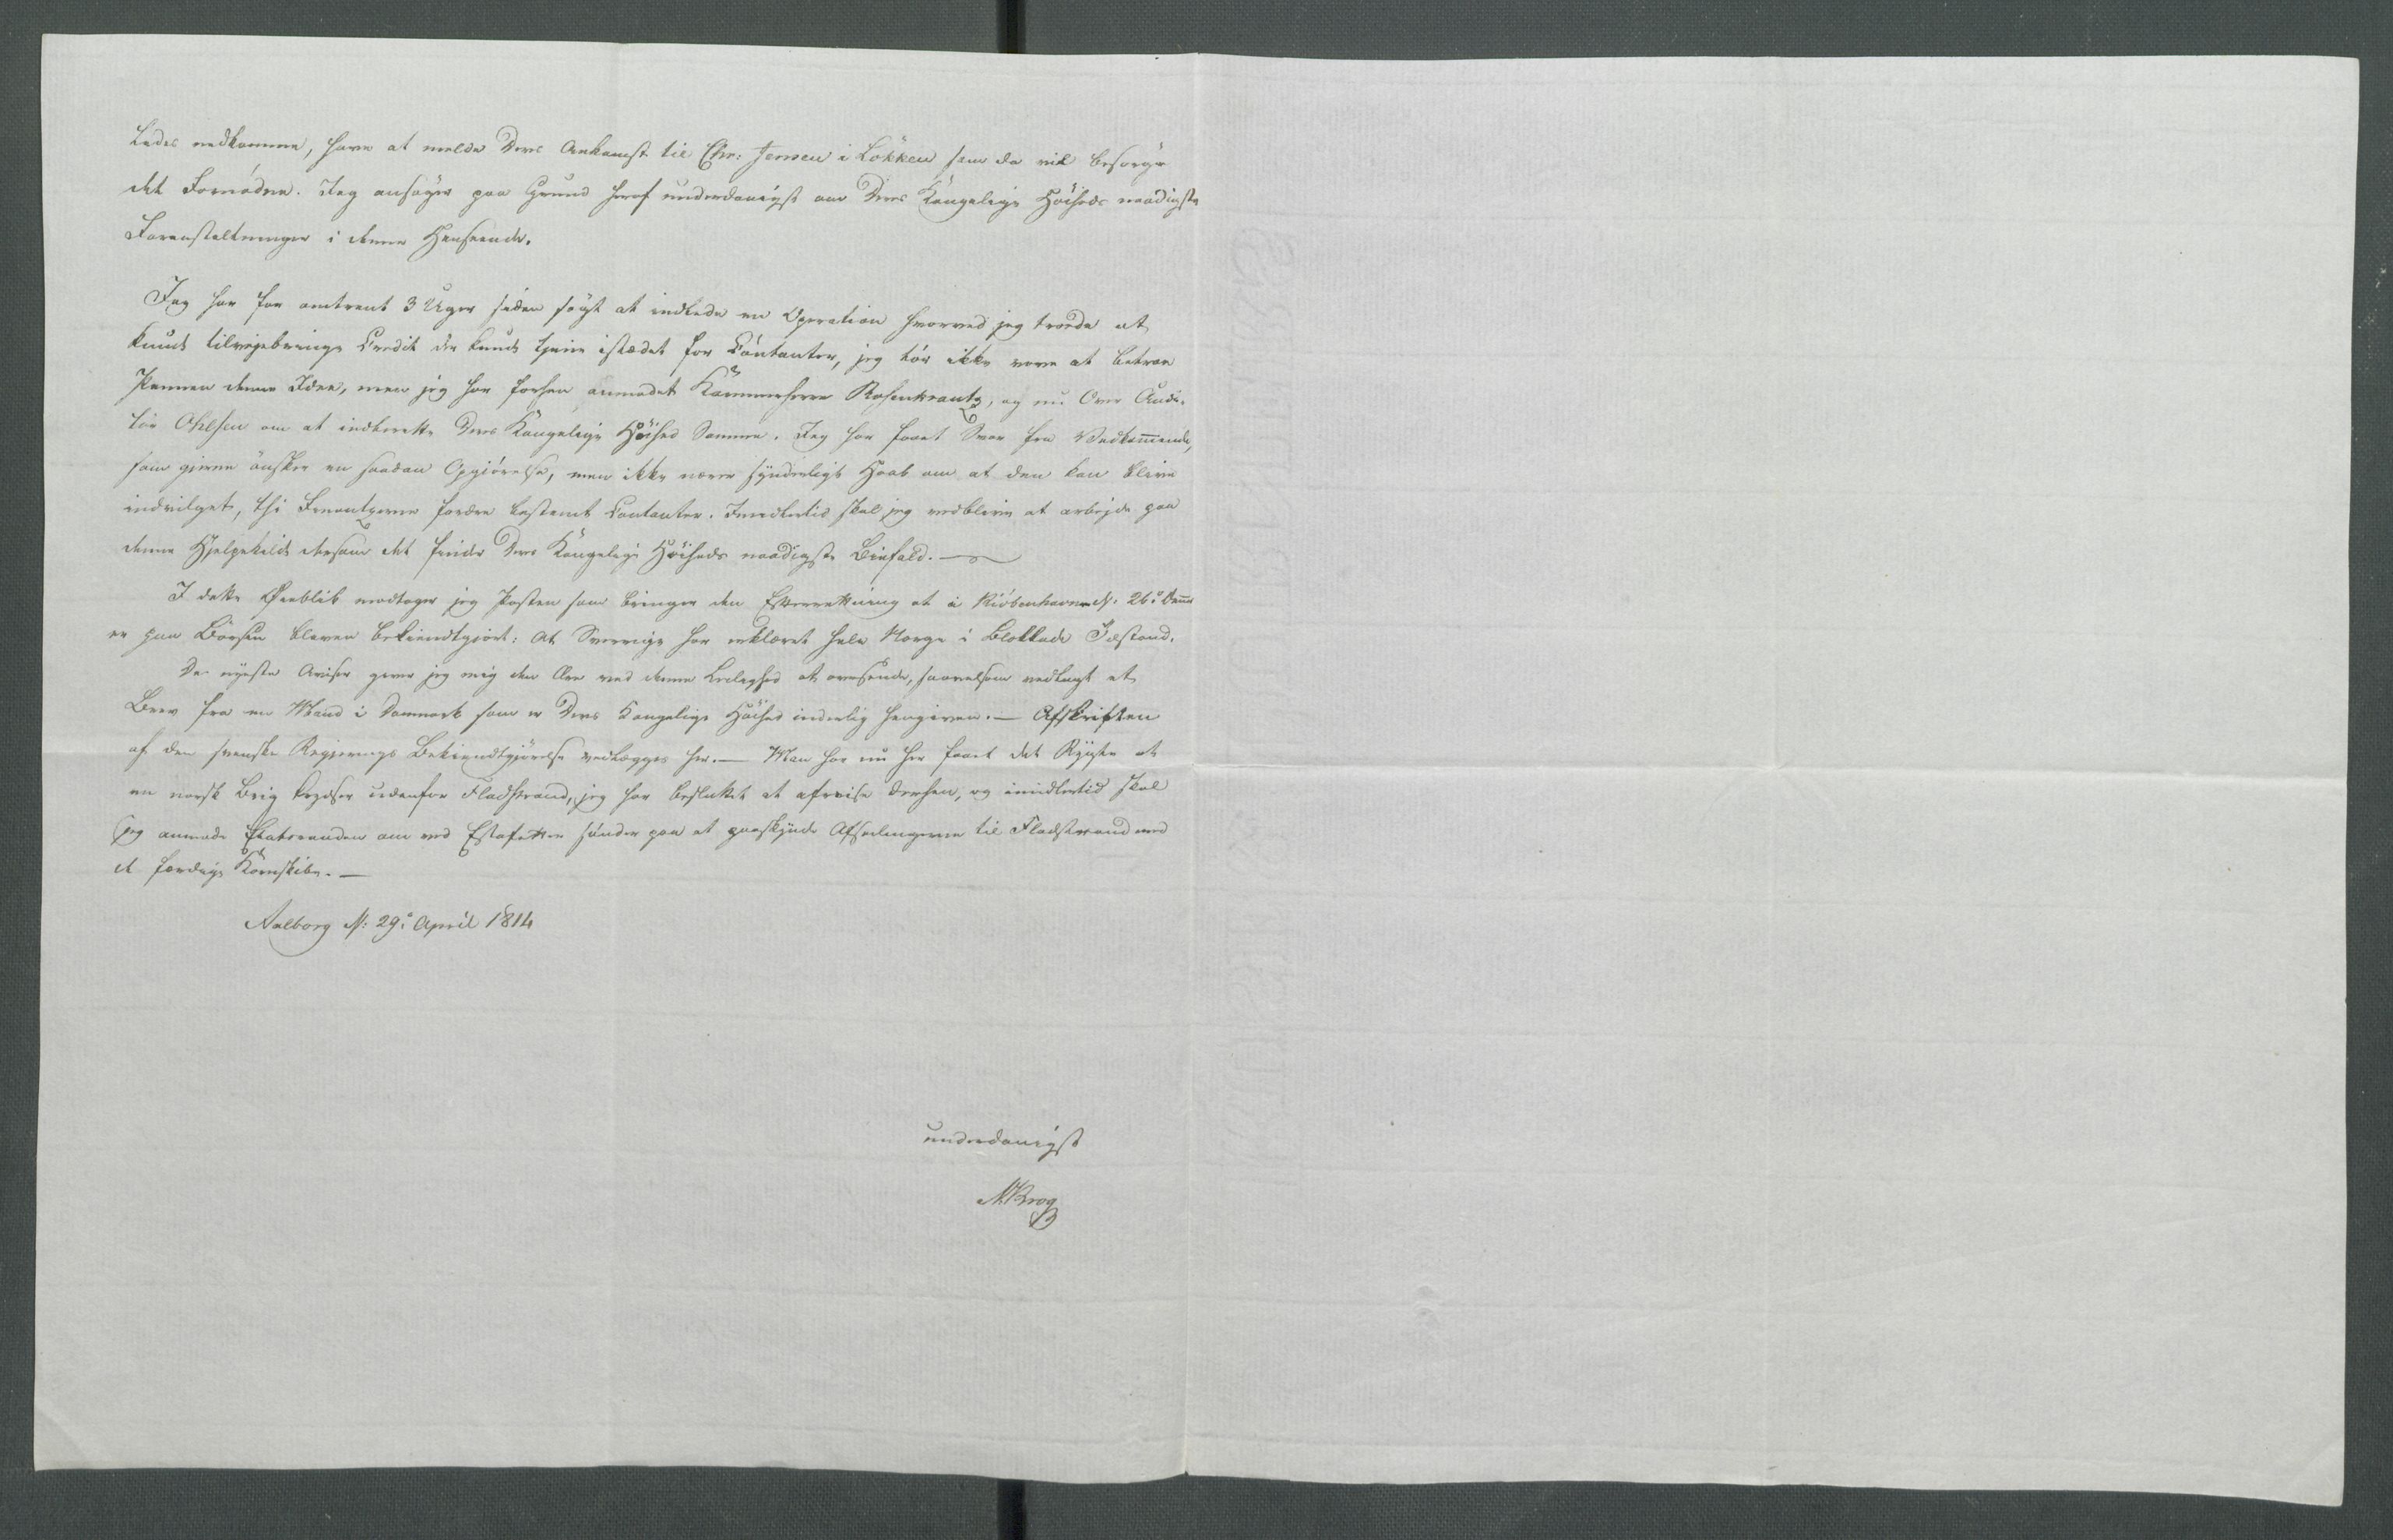 ledes nedkomme, have at melde Deres Ankomst til Chr: Jensen i Lökken som da vil besørge
det Fornödne. Jeg ansøger paa Grund heraf underdanigst om Deres Kongelige Höiheds naadigste
Foranstaltninger i denne Henseende.
Jeg har for omtrent 3 Uger siden søgt at indlede en Operation hvorved jeg troede at
kunde tilvejebringe Credit der kunde tjene istædet for Contanter, jeg tör ikke vove at betroe
Pennen denne Idee, men jeg har forhen anmodet Kammerherre Rosenkrantz, og nu Over Audi-
tör Ohlsen om at indberette Deres Kongelige Höihed Samme. Jeg har faaet Svar fra Vedkommende,
som gjerne önsker en saadan Opgjörelse, men ikke nærer synderligt Haab om at den kan blive
indvilget, thi fordre bestemt Contanter. Imidlertid skal jeg vedblive at arbejde paa
denne Hjelpekilde dersom det finder Deres Kongelige Höiheds naadigste Biefald. —
I dette Øieblik modtager jeg Posten som bringer den Efterretning at i Kiöbenhavn d: 26: Denne
er paa Börsen bleven bekiendtgiort: At Sverrige har erklæret hele Norge i Blokkade Tilstand.
De nyeste Aviser giver jeg mig den Ære ved denne Leilighed at oversende, saavelsom vedlagt et
Brev fra en Mand i Danmark som er Deres Kongelige Höihed inderlig hengiven. — Afskriften
af den svenske Regjerings Bekiendtgjörelse vedlægges her. — Man har nu her faaet det Rygte at
en norsk Brig krydser udenfor Fladstrand, jeg har besluttet at afreise derhen, og imidlertid skal
jeg anmode Etatsraaden om ved Estafetter sönder paa at paaskynde Afseilingerne til Fladstrand med
de færdige Kornskibe. —
Aalborg d: 29: April 1814
underdanigst
NKrog